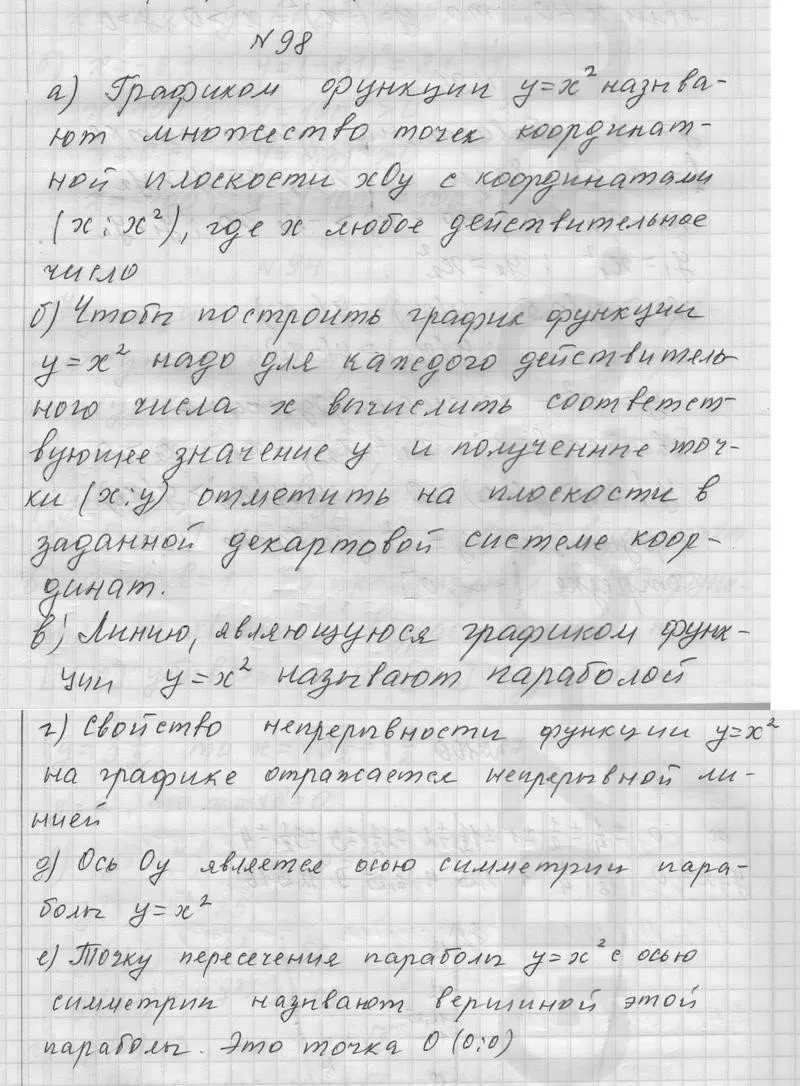 №98
а) Графиком функции y=x² называ-
ют множество точек координат-
ной плоскости xOy с координатами
(x; x²), где x любое действительное
число
б) Чтобы построить график функции
y=x² надо для каждого действитель-
ного числа x вычислить соответст-
вующее значение y и полученные точ-
ки (x;y) отметить на плоскости в
заданной декартовой системе коор-
динат.
в) Линию, являющуюся графиком функ-
ции y=x² называют параболой
г) Свойство непрерывности функции y=x²
на графике отражается непрерывной ли-
нией
д) Ось Oy является осью симметрии пара-
болы y=x²
е) Точку пересечения параболы y=x² с осью
симметрии называют вершиной этой
параболы. Это точка O (0;0)